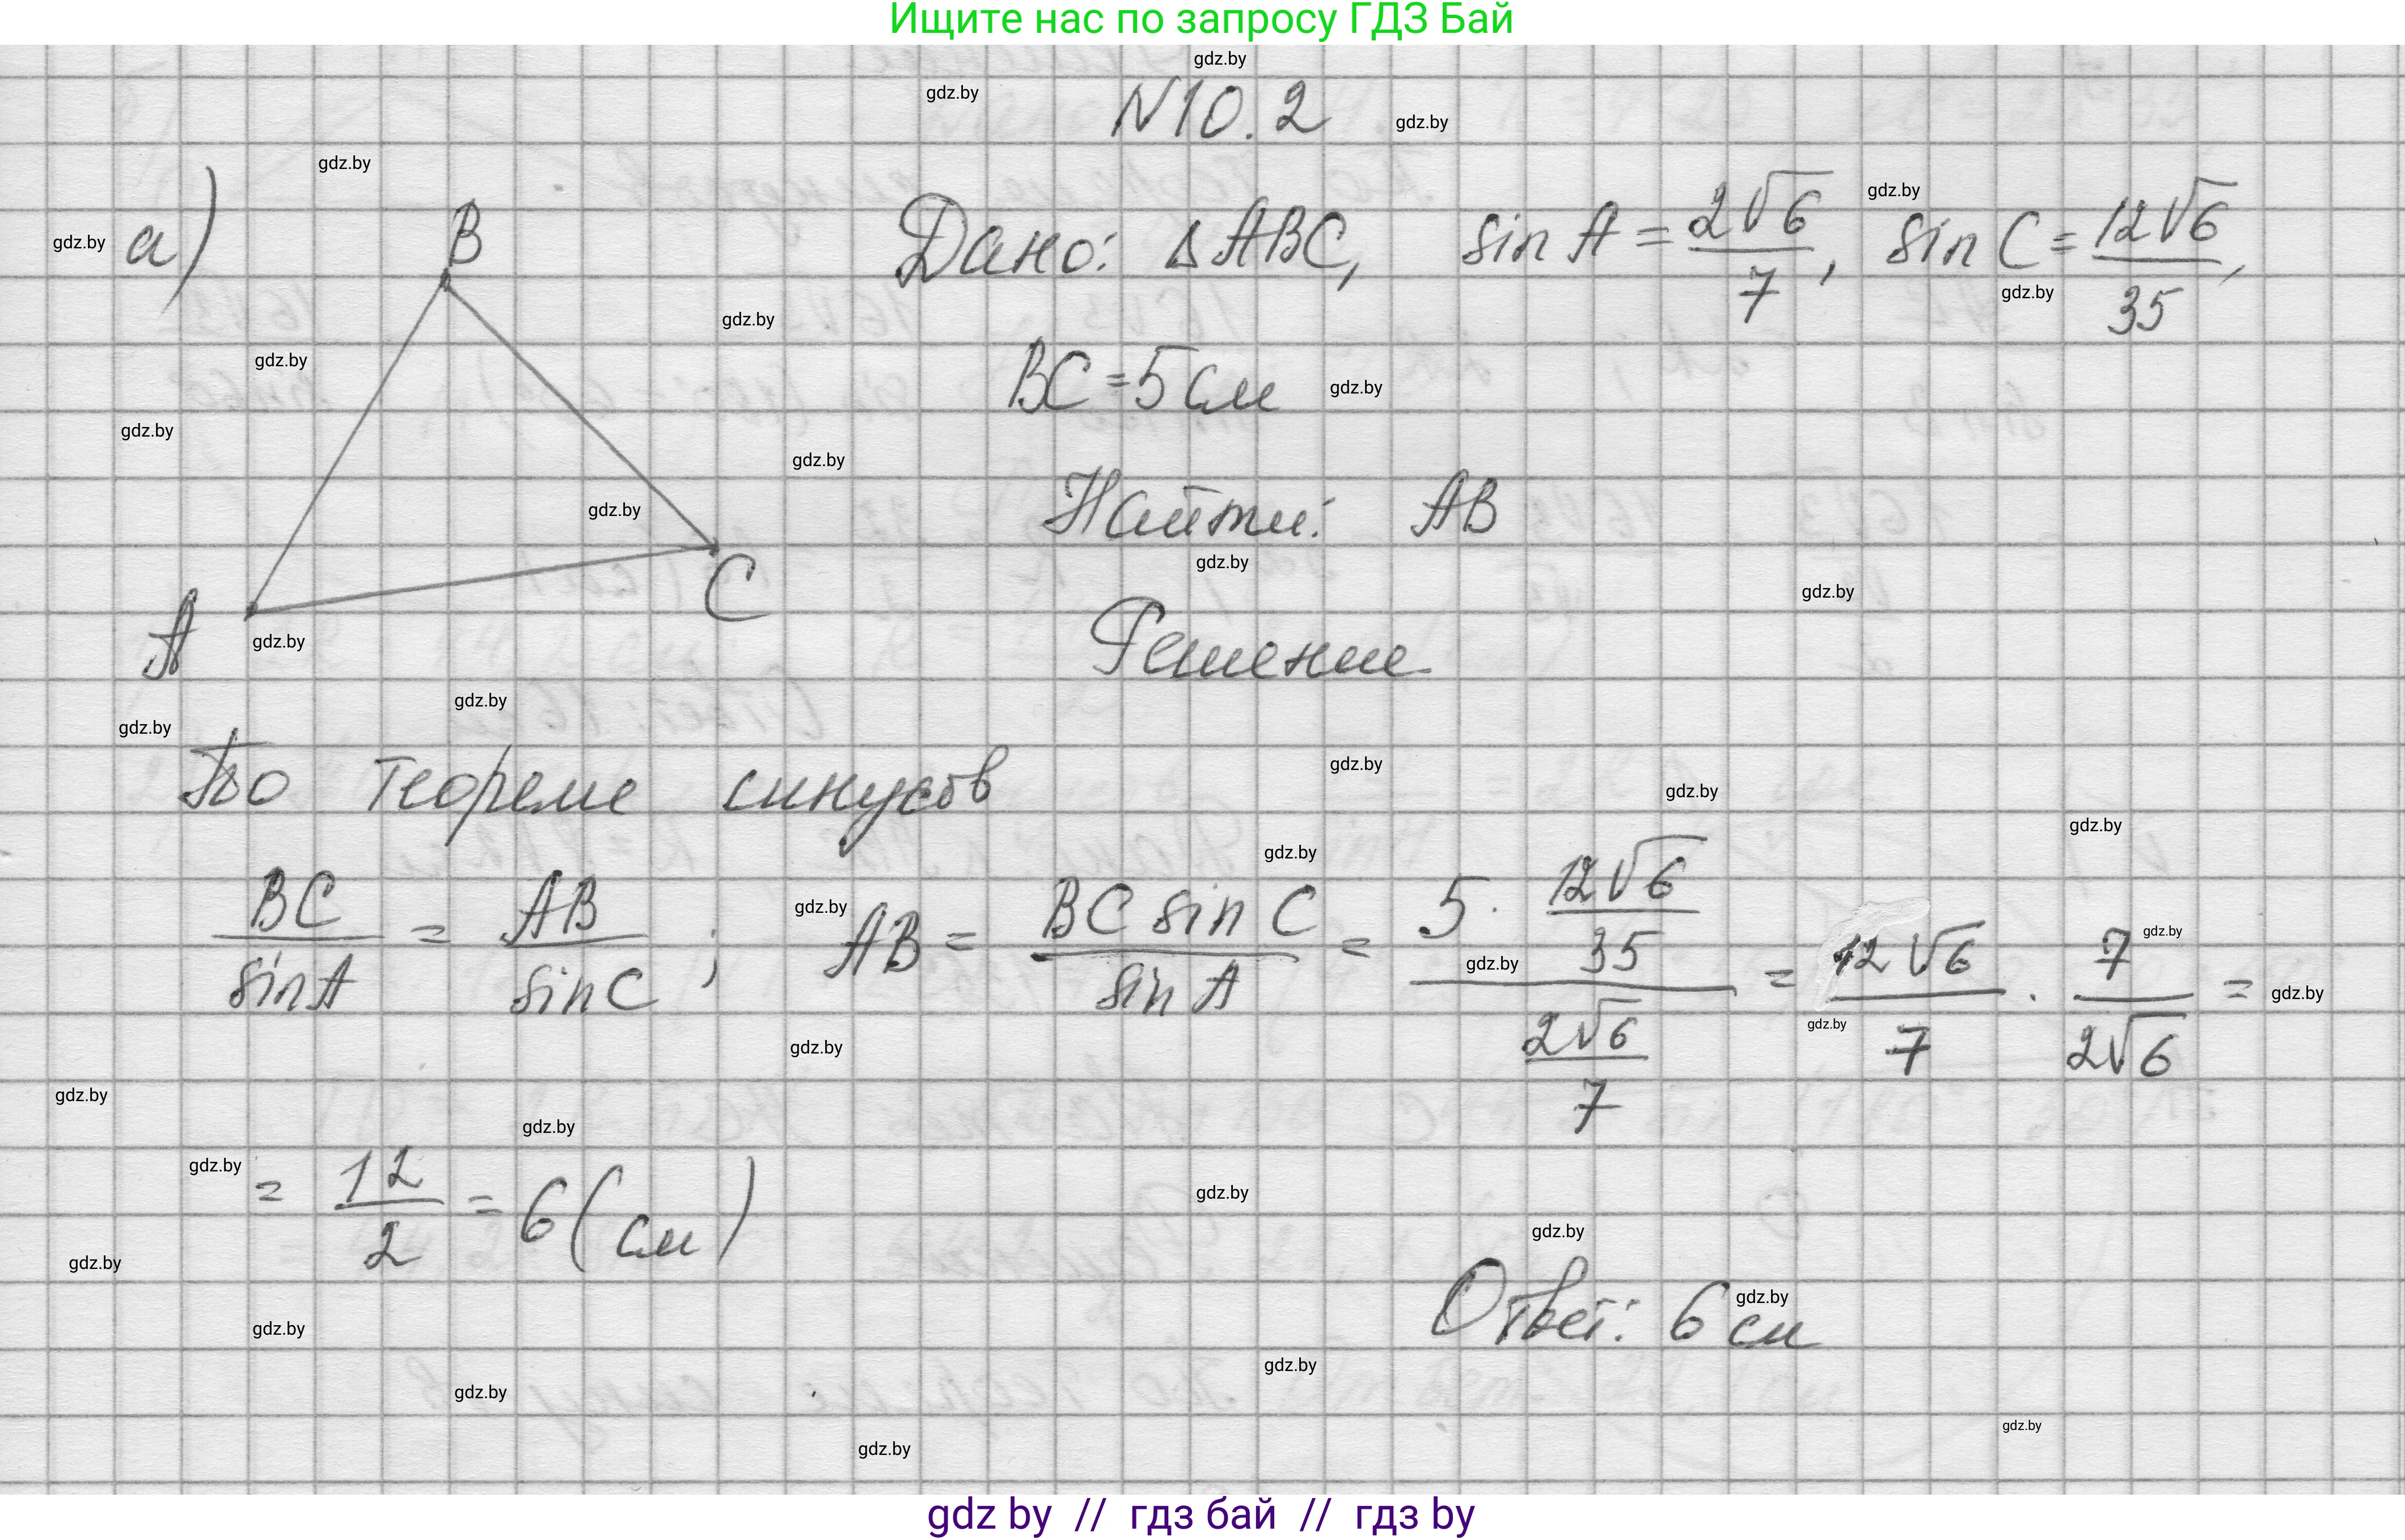 Ищите нас по запросу ГДЗ Бай
N10.2
а)
B
A
C
Дано: Δ ABC, sin A = 2√6/7, sin C = 12√6/35,
BC = 5 см
Найти: AB
Решение
По теореме синусов
BC/sin A = AB/sin C ; AB = BC sin C/sin A = (5 · 12√6/35)/(2√6/7) = 12√6/7 · 7/2√6 =
= 12/2 = 6 (см)
Ответ: 6 см
gdz by // гдз бай // гдз by
gdz.by